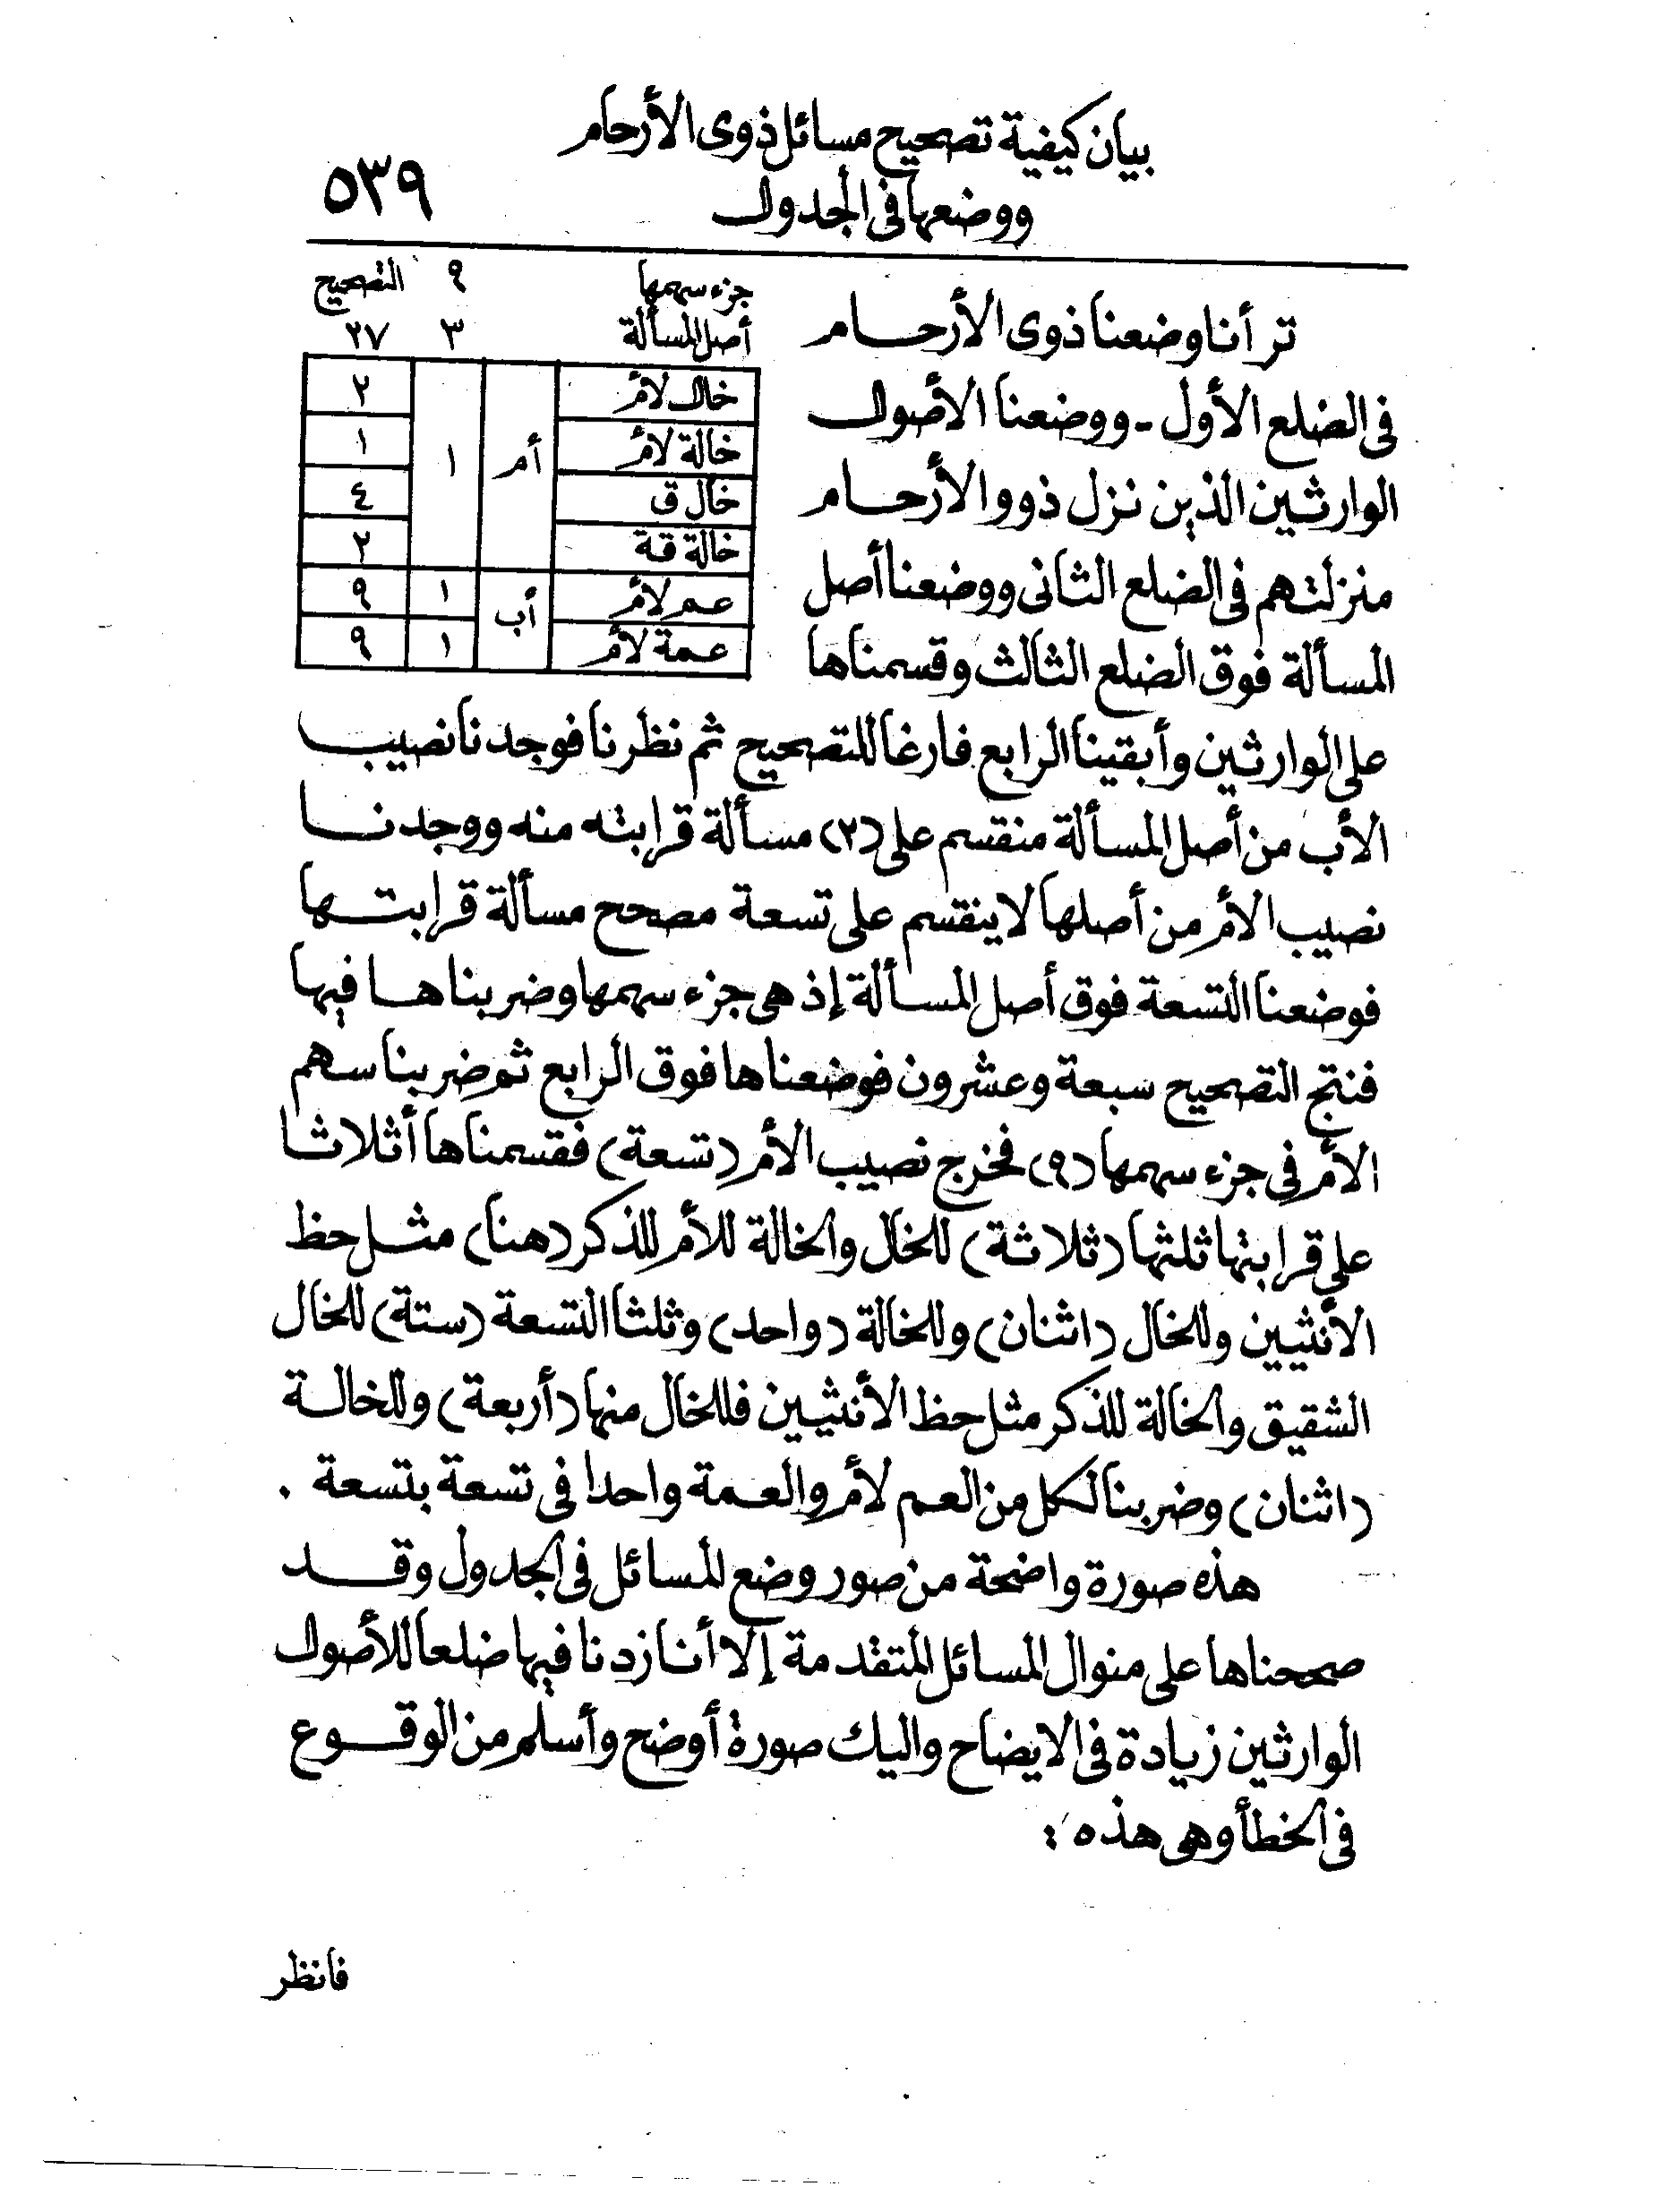 بيان كيفية تصحيح مسائل ذوى الأرحام
ووضعها فى الجدول
٥٣٩
جزء سهمها ٩ التصحيح
أصل المسألة ٣ ٢٧
خال لأم أم ١ ٢
خالة لأم ١
خال ق ٤
خالة قة ٢
عم لأم أب ١ ٩
عمة لأم ١ ٩
تر أنا وضعنا ذوى الأرحام
فى الضلع الأول - ووضعنا الأصول
الوارثين الذين نزل ذوو الأرحام
منزلتهم فى الضلع الثانى ووضعنا أصل
المسألة فوق الضلع الثالث وقسمناها
على الوارثين وأبقينا الرابع فارغا للتصحيح ثم نظرنا فوجدنا نصيب
الأب من أصل المسألة منقسم على (٢) مسألة قرابته منه ووجدنا
نصيب الأم من أصلها لا ينقسم على تسعة مصحح مسألة قرابتها
فوضعنا التسعة فوق أصل المسألة إذ هى جزء سهمها وضربناها فيها
فنتج التصحيح سبعة وعشرون فوضعناها فوق الرابع ثم ضربنا سهم
الأم فى جزء سهمها (٩) فخرج نصيب الأم (تسعة) فقسمناها أثلاثا
على قرابتها ثلثها (ثلاثة) للخال والخالة للأم للذكر (هنا) مثل حظ
الأنثيين وللخال (اثنان) وللخالة (واحد) وثلثا التسعة (ستة) للخال
الشقيق والخالة للذكر مثل حظ الأنثيين فللخال منها (أربعة) وللخالة
(اثنان) وضربنا لكل من العم لأم والعمة واحدا فى تسعة بتسعة .
هذه صورة واضحة من صور وضع المسائل فى الجدول وقد
صححناها على منوال المسائل المتقدمة إلا أننا زدنا فيها ضلعا للأصول
الوارثين زيادة فى الايضاح واليك صورة أوضح وأسلم من الوقوع
فى الخطأ وهى هذه :
فانظر